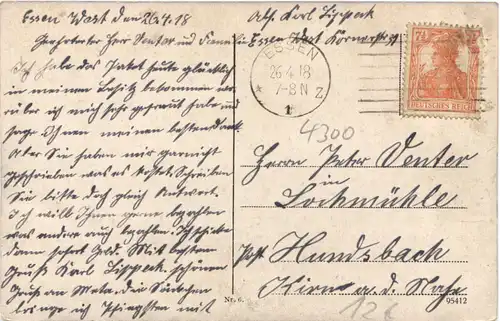 Essen West den 26.4.18
Geehrtester Herr Venter und Familie
Ich habe das Paket heute glücklich
in meinen Besitz bekommen wo
rüber ich mich sehr gefreut habe und
sage Ihnen meinen besten Dank
Aber Sie haben mir garnicht
geschrieben was es kostet. Schreiben
Sie bitte doch gleich Antwort.
Ich will Ihnen gerne bezahlen
was andere auch bezahlen. Ich schicke
dann sofort Geld. Mit bestem
Gruß Karl Lippeck. schönen
Gruß an Meta. die Säckchen
bringe ich Pfingsten mit
Abs. Karl Lippeck
Essen West
ESSEN
26.4.18
7-8 N
* 1 Z.
7½
DEUTSCHES REICH
4300
Herrn Peter Venter
in
Lochmühle
Post Hundsbach
Kirn a. d. Nahe
Nr. 6.
95412
12€